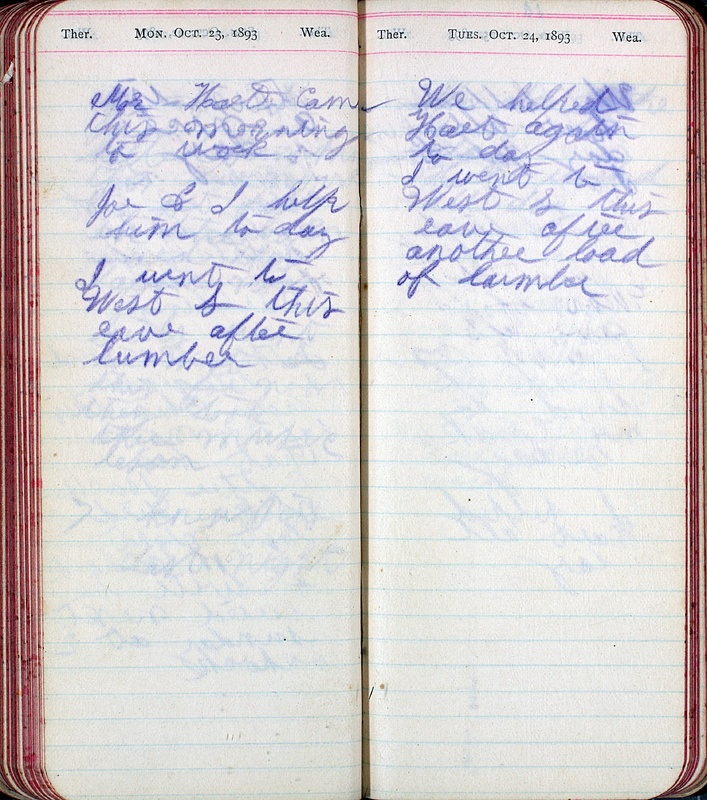 Ther. MON. OCT. 23, 1893 Wea.
Mr Haet Came
this morning
to work
Joe & I help
him to day
I went to
West S this
eave after
lumber
Ther. TUES. OCT. 24, 1893 Wea.
We helped
Haet again
to day
I went to
West S this
eave after
another load
of lumber